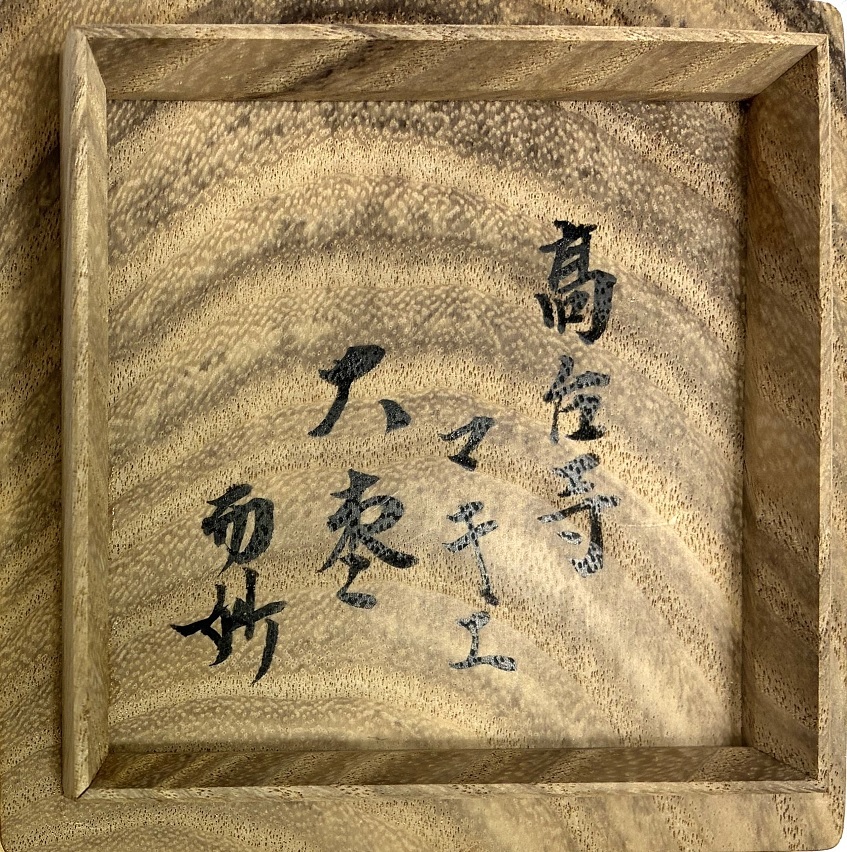 高台寺
マキエ
大棗
而妙